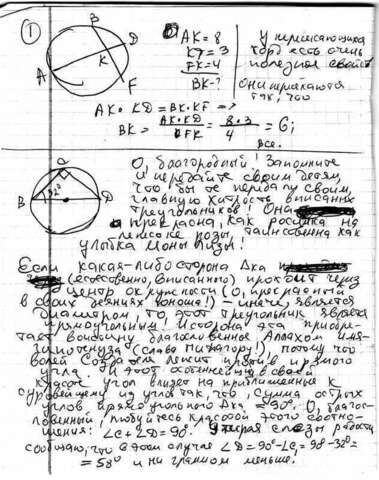 ①
B
D
K
A
F
AK = 8
KD = 3
FK = 4
BK - ?
У пересекающихся
хорд есть очень
полезное свойство
они пересекаются
так, что
AK · KD = BK · KF =>
BK = AK · KD / FK = 8 · 3 / 4 = 6;
Все.
C
32°
B
D
О, благородный! Запомните
и передайте своим детям,
что бы те передали своим,
главную хитрость вписанных
треугольников! Она
прекрасна, как росинка на
лепестке розы, таинственна как
улыбка Моны Лизы!
Если какая-либо сторона Δка
(естественно, вписанного) проходит через
центр окружности (О, прекрасный
в своих деяниях юноша!) (иначе, является
диаметром, то этот треугольник является
прямоугольным! И сторона эта приобре-
тает воистину благословенное Аллахом имя -
гипотенуза (слава Пифагору!) потому что
волей Создателя лежит против прямого
угла. И этот
угол влияет на приближенные к
углов так, что, сумма острых
углов прямоугольного Δка = 90°. О, благос-
ловенный, любуйтесь красотой этого соотно-
шения: ∠C + ∠D = 90°. Утирая слезы радости
сообщаю, что в этом случае ∠D = 90° - ∠C = 90° - 32° =
= 58° и ни граммом меньше.